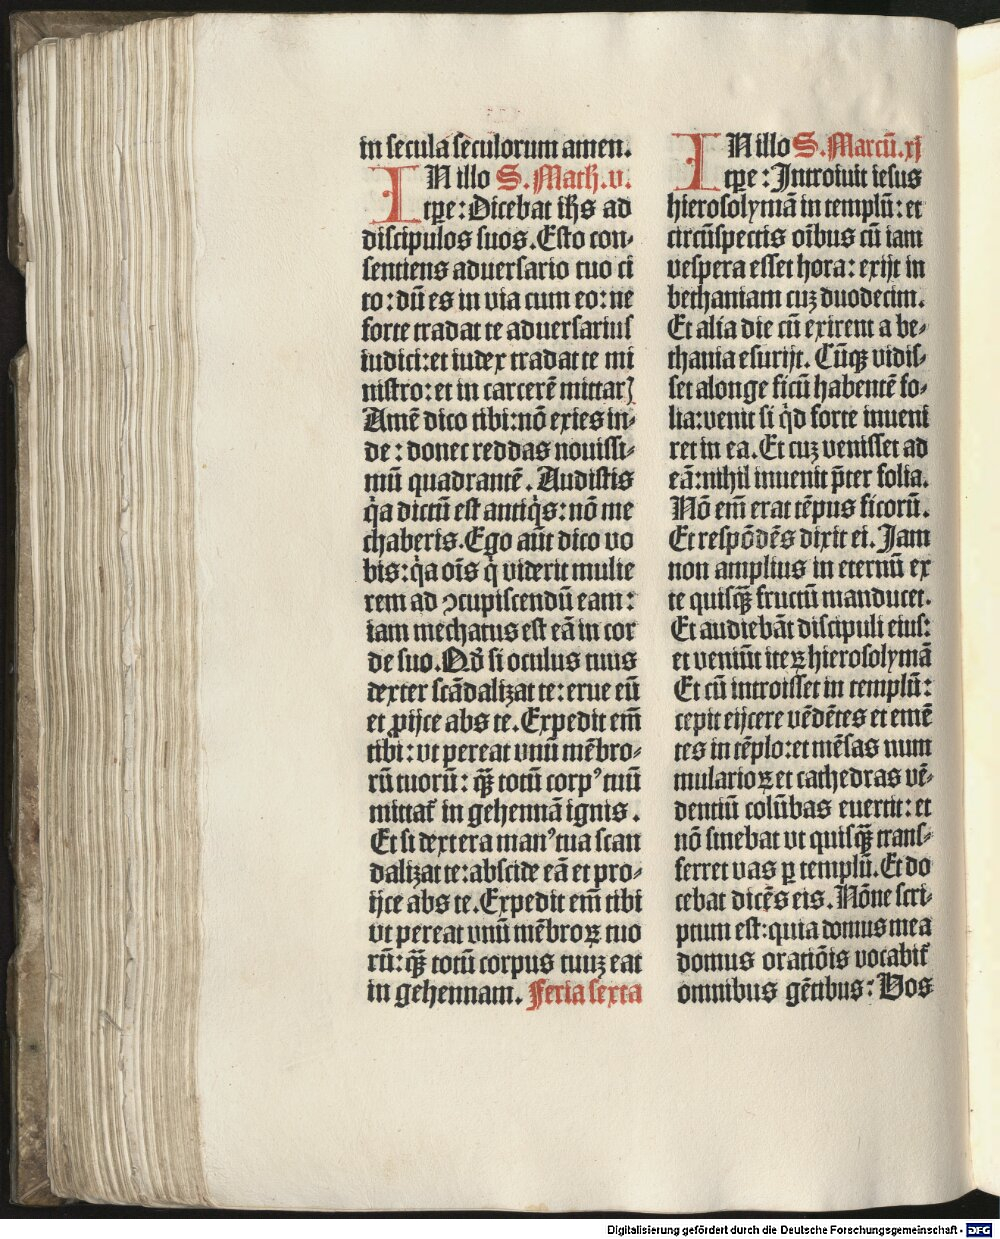 in secula seculorum amen.
IN illo S. Math. v.
tꝑe: Dicebat ihs ad
discipulos suos. Esto con⸗
sentiens aduersario tuo ci
to: dū es in via cum eo: ne
forte tradat te aduersarius
iudici: et iudex tradat te mi
nistro: et in carcerē mittarꝭ
Amē dico tibi: nō exies in⸗
de: donec reddas nouissi⸗
mū quadrantē. Audistis
q̇a dictū est antiq̇s: nō me
chaberis. Ego aūt dico vo
bis: q̇a oīs q̇ viderit mulie
rem ad ꝯcupiscendū eam:
iam mechatus est eā in cor
de suo. Qď si oculus tuus
dexter scādalizat te: erue eū
et ꝓijce abs te. Expedit em̄
tibi: vt pereat vnū mēbro⸗
rū tuorū: qꝫ̄ totū corpꝰ tuū
mittat᷑ in gehennā ignis.
Et si dextera manꝰ tua scan
dalizat te: abscide eā et pro⸗
ijce abs te. Expedit em̄ tibi
vt pereat vnū mēbroꝝ tuo
rū: qꝫ̄ totū corpus tuuꝫ eat
in gehennam. Feria sexta
IN illo S. Marcū. xj
tꝑe: Introiuit iesus
hierosolymā in templū: et
circūspectis oībus cū iam
vespera esset hora: exijt in
bethaniam cuꝫ duodecim.
Et alia die cū exirent a be⸗
thania esurijt. Cūqꝫ vidis⸗
set alonge ficū habentē fo⸗
lia: venit si q̇d forte inueni
ret in ea. Et cuꝫ venisset ad
eā: nihil inuenit p̄ter folia.
Nō em̄ erat tēpus ficorū.
Et respōdēs dixit ei. Iam
non amplius in eternū ex
te quisqꝫ̄ fructū manducet.
Et audiebāt discipuli eius:
et veniūt iteꝝ hierosolymā
Et cū introisset in templū:
cepit eijcere vēdētes et emē
tes in tēplo: et mēsas num
mularioꝝ et cathedras vē⸗
dentiū colūbas euertit: et
nō sinebat vt quisqꝫ̄ trans⸗
ferret vas ꝑ templū. Et do
cebat dicēs eis. Nōne scri⸗
ptum est: quia domus mea
domus oratiōis vocabit᷑
omnibus gētibus: Vos
Digitalisierung gefördert durch die Deutsche Forschungsgemeinschaft - DFG